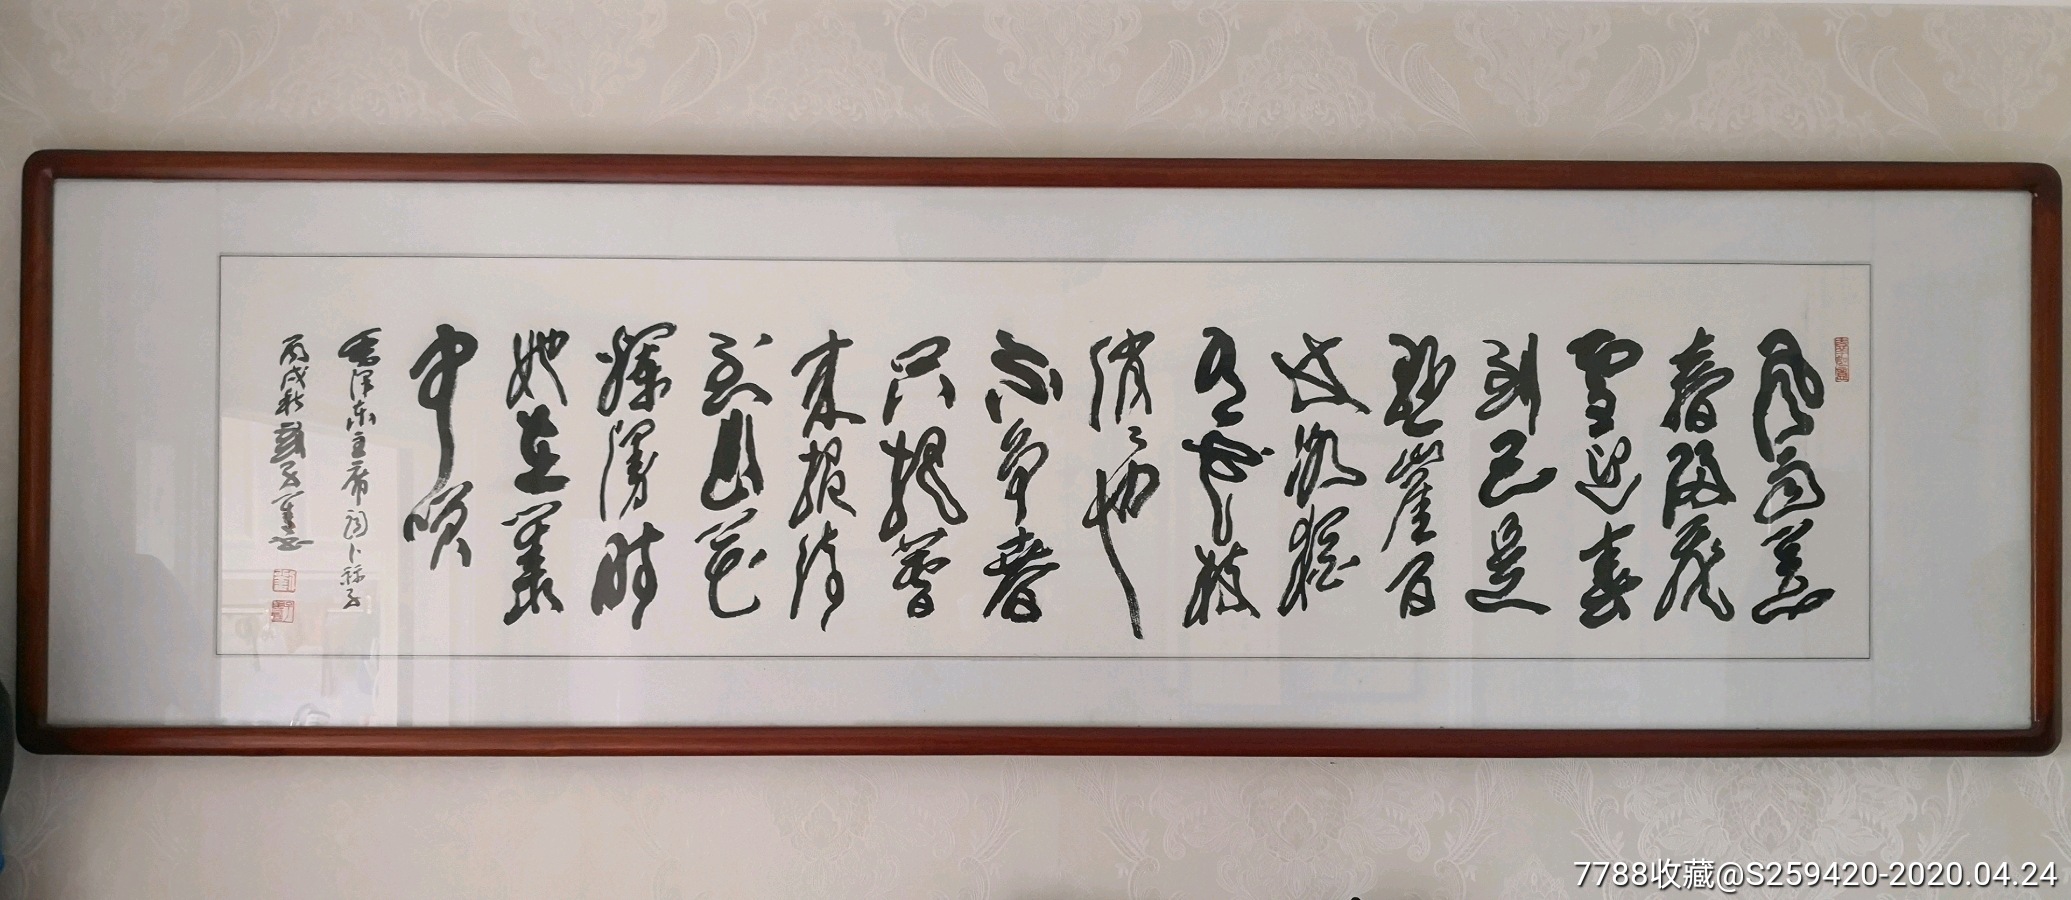 风雨送
春归飞
雪迎春
到已是
悬崖百
丈冰犹
有花枝
俏俏也
不争春
只把春
来报待
到山花
烂漫时
她在丛
中笑
毛泽东主席词卜算子
丙戌秋
7788收藏@S259420-2020.04.24